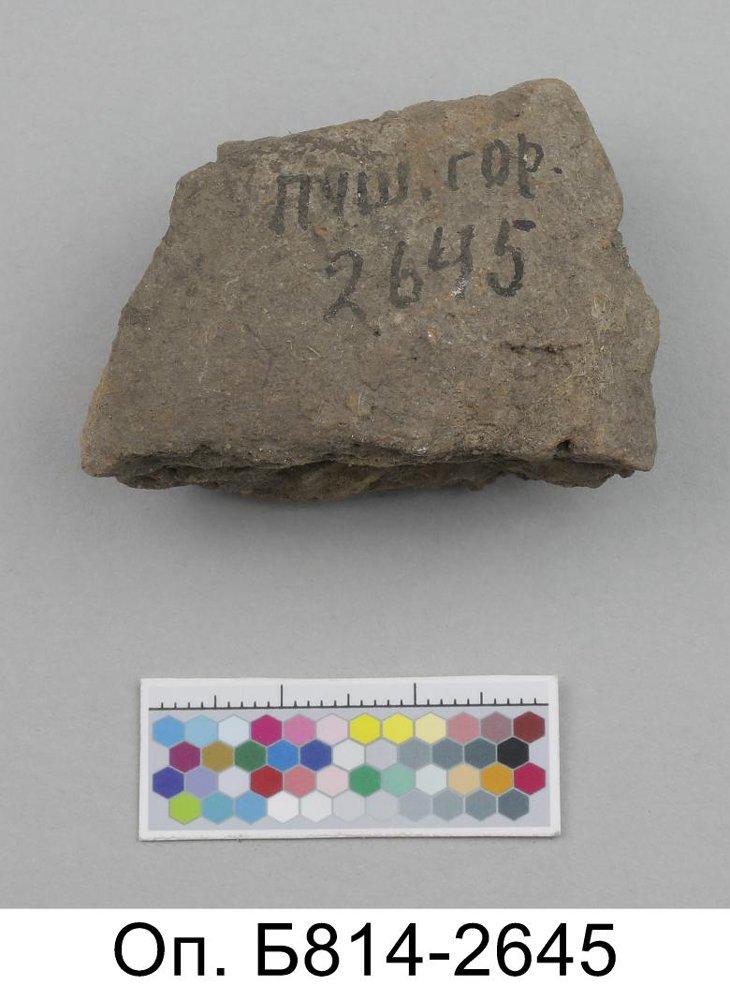 пуш. гор.
2645
Оп. Б814-2645